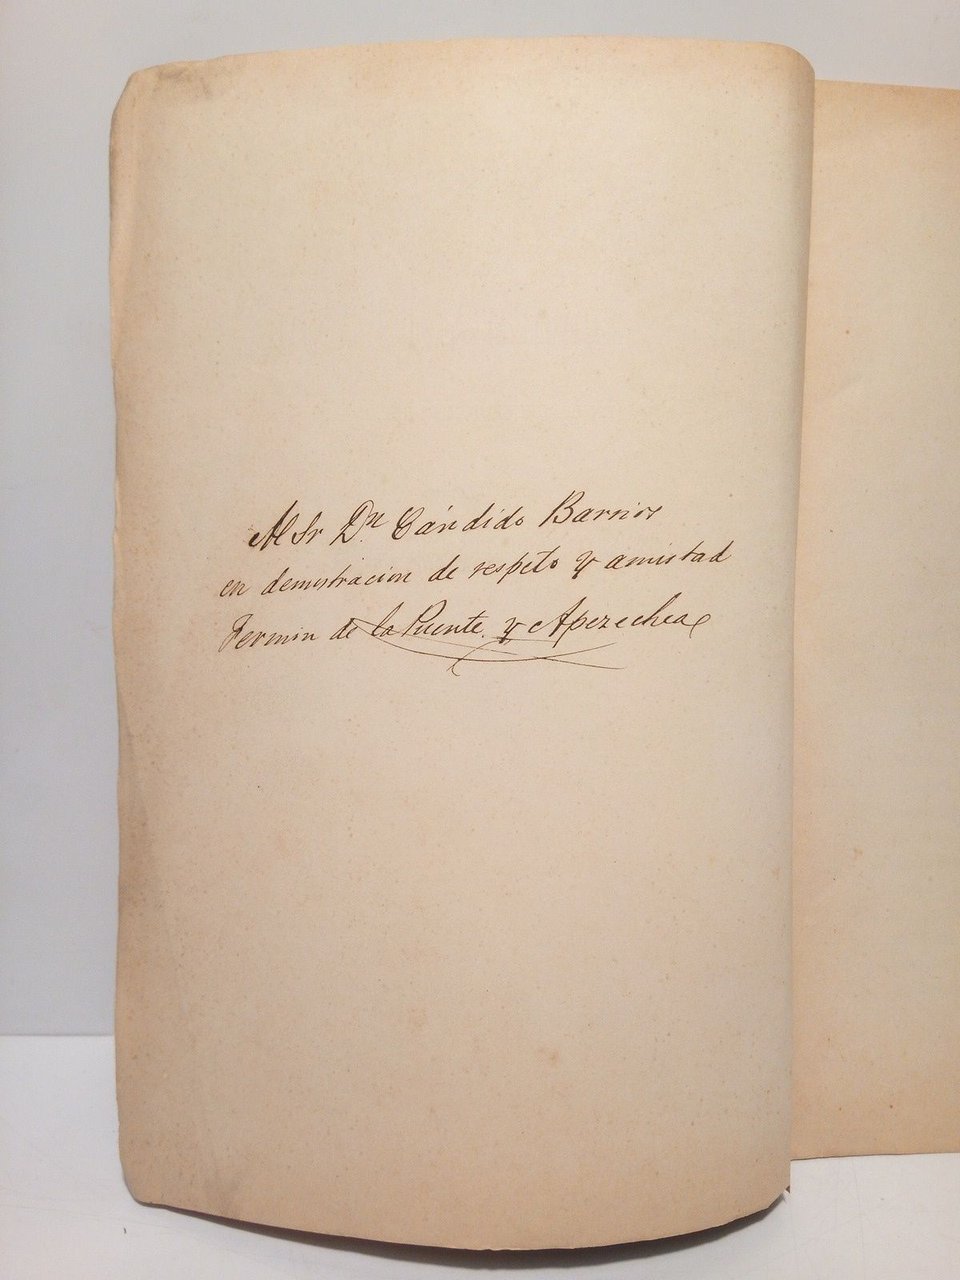 Al Sr Dn. Cándido Barrios
en demostracion de respeto y amistad
Fermin de la Puente y Apezechea